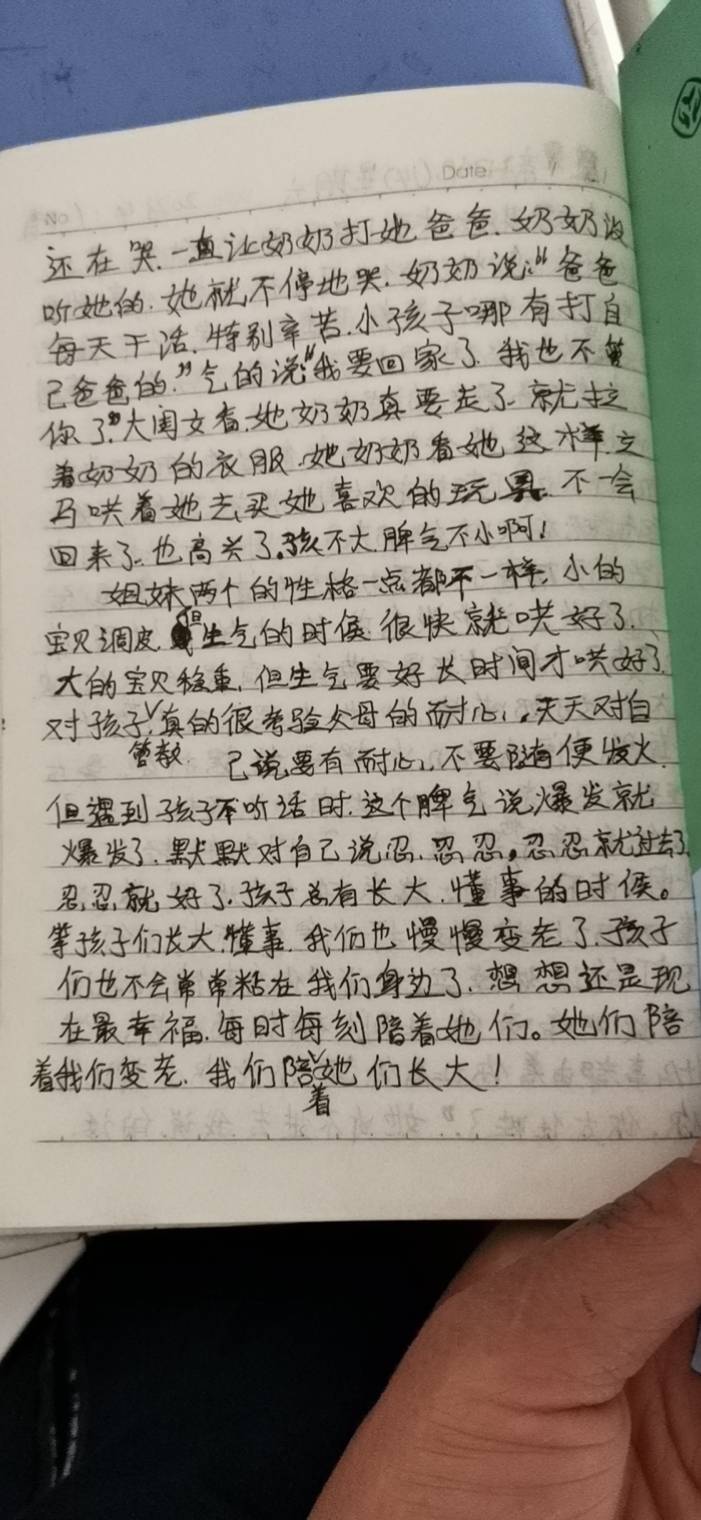 Date
还在哭.一直让奶奶打她爸爸.奶奶没
听她的.她就不停地哭.奶奶说:"爸爸
每天干活.特别辛苦.小孩子哪有打自
己爸爸的."气的说:"我要回家了.我也不管
你了"大闺女看.她奶奶真要走了.就拉
着奶奶的衣服.她奶奶看她这样.立
马哄着她去买她喜欢的玩具.不一会
回来了.也高兴了。孩不大.脾气不小啊!
姐妹两个的性格一点都不一样.小的
宝贝调皮.但生气的时候.很快就哄好了.
大的宝贝稳重.但生气要好长时间才哄好了.
对孩子管教真的很考验父母的耐心.天天对自
己说要有耐心.不要随便发火.
但遇到孩子不听话时.这个脾气说爆发就
爆发了.默默对自己说忍.忍忍。忍忍就过去了.
忍忍就好了.孩子总有长大.懂事的时候。
等孩子们长大.懂事.我们也慢慢变老了.孩子
们也不会常常粘在我们身边了.想想还是现
在最幸福.每时每刻陪着她们。她们陪
着我们变老.我们陪着她们长大!